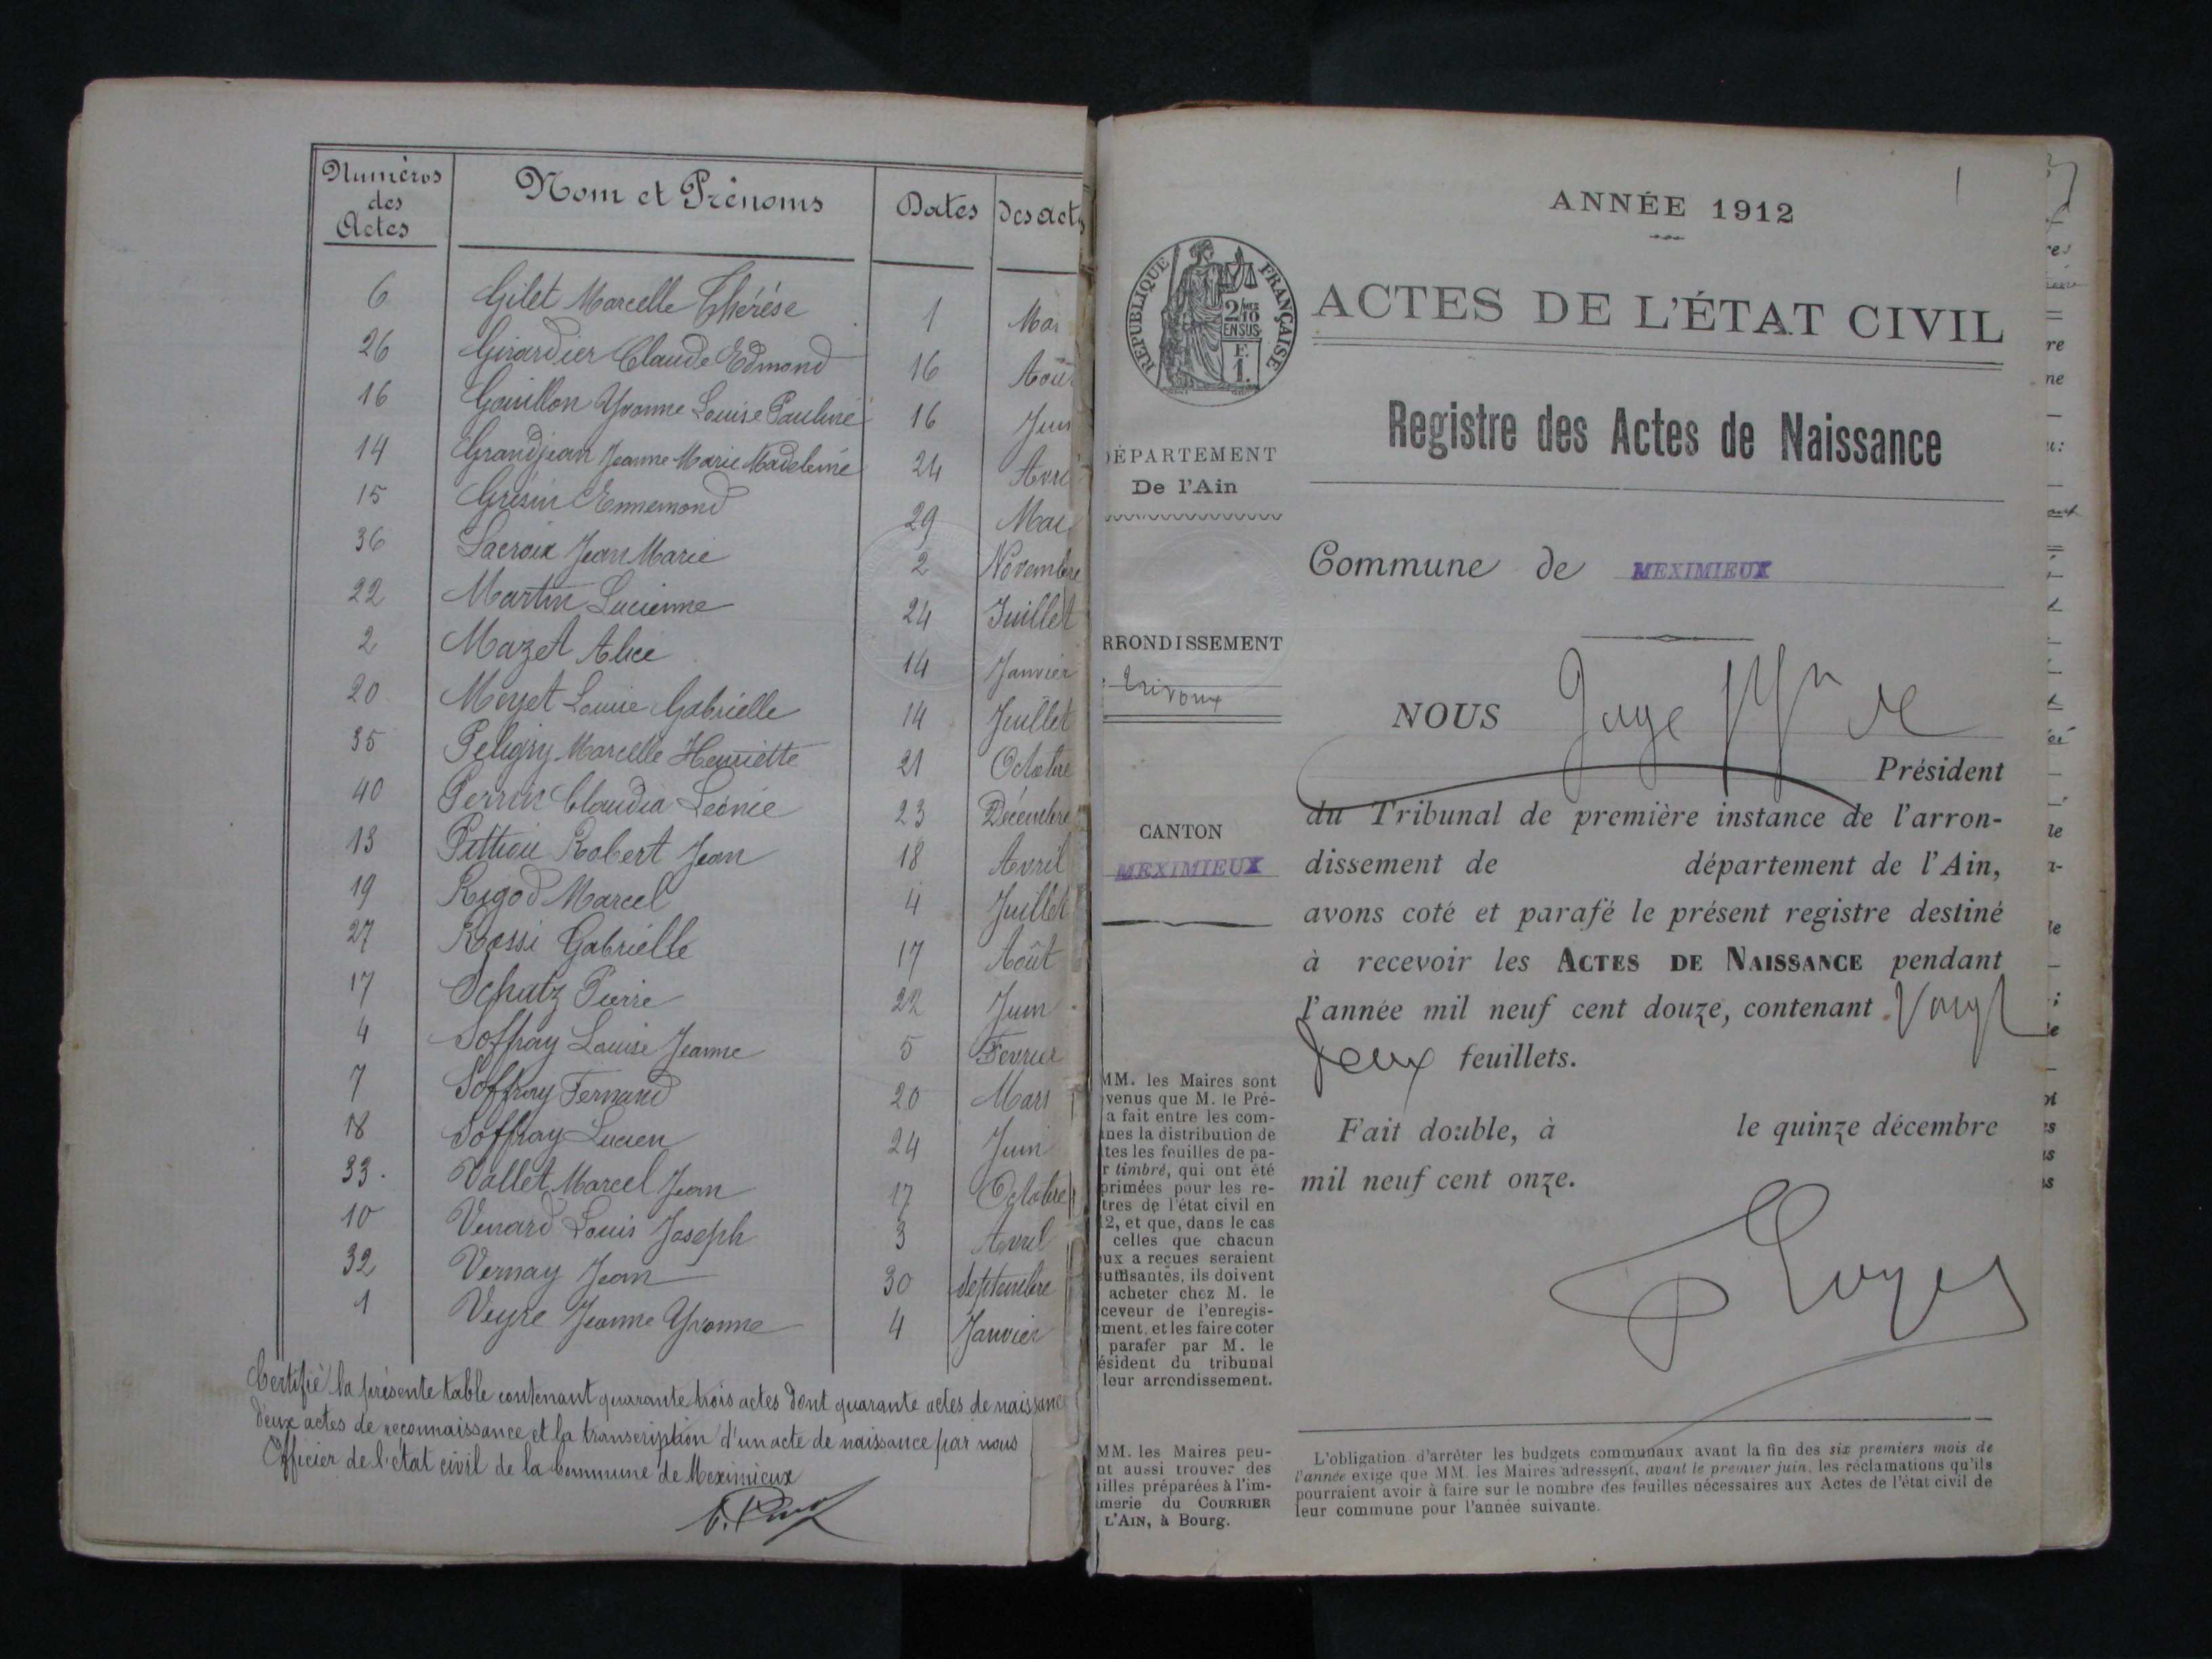 Numéros des Actes | Nom et Prénoms | Dates | Des act
6 Gilet Marcelle Thérèse 1 Mar
26 Girardier Claude Edmond 16 Août
16 Gouillon Yvonne Louise Pauline 16 Juin
14 Grandjean Jeanne Marie Madeleine 24 Avril
15 Grésin Ennemond 29 Mai
36 Lacroix Jean Marie 2 Novembre
22 Martin Lucienne 24 Juillet
2 Mazet Alice 14 Janvier
20 Moyet Louise Gabrielle 14 Juillet
35 Peligry Marcelle Henriette 21 Octobre
40 Perrin Claudia Léonie 23 Décembre
13 Robert Jean 18 Avril
19 Rigod Marcel 4 Juillet
27 Rossi Gabrielle 17 Août
17 Schutz Pierre 22 Juin
4 Soffray Louise Jeanne 5 Février
7 Soffray Fernand 20 Mars
18 Soffray Lucien 24 Juin
33. Vallet Marcel Jean 17 Octobre
10 Venard Louis Joseph 3 Avril
32 Vernay Jean 30 septembre
1 Veyre Jeanne Yvonne 4 Janvier
Certifié la présente table contenant quarante trois actes dont quarante actes de naissance
deux actes de reconnaissance et la transcription d'un acte de naissance par nous
Officier de l'état civil de la Commune de Meximieux
1
ANNÉE 1912
RÉPUBLIQUE FRANÇAISE
2/10 EN SUS
F. 1.
ACTES DE L'ÉTAT CIVIL
Registre des Actes de Naissance
DÉPARTEMENT
De l'Ain
Commune de MEXIMIEUX
RRONDISSEMENT
Trévoux
CANTON
MEXIMIEUX
NOUS Juge
Président
du Tribunal de première instance de l'arron-
dissement de département de l'Ain,
avons coté et parafé le présent registre destiné
à recevoir les ACTES DE NAISSANCE pendant
l'année mil neuf cent douze, contenant Vingt
deux feuillets.
Fait double, à le quinze décembre
mil neuf cent onze.
MM. les Maires sont
venus que M. le Pré-
a fait entre les com-
nes la distribution de
tes les feuilles de pa-
r timbré, qui ont été
primées pour les re-
tres de l'état civil en
2, et que, dans le cas
celles que chacun
ux a reçues seraient
uffisantes, ils doivent
acheter chez M. le
ceveur de l'enregis-
ment, et les faire coter
parafer par M. le
ésident du tribunal
leur arrondissement.
MM. les Maires peu-
nt aussi trouver des
illes préparées à l'im-
merie du COURRIER
L'AIN, à Bourg.
L'obligation d'arrêter les budgets communaux avant la fin des six premiers mois de
l'année exige que MM. les Maires adressent, avant le premier juin, les réclamations qu'ils
pourraient avoir à faire sur le nombre des feuilles nécessaires aux Actes de l'état civil de
leur commune pour l'année suivante.